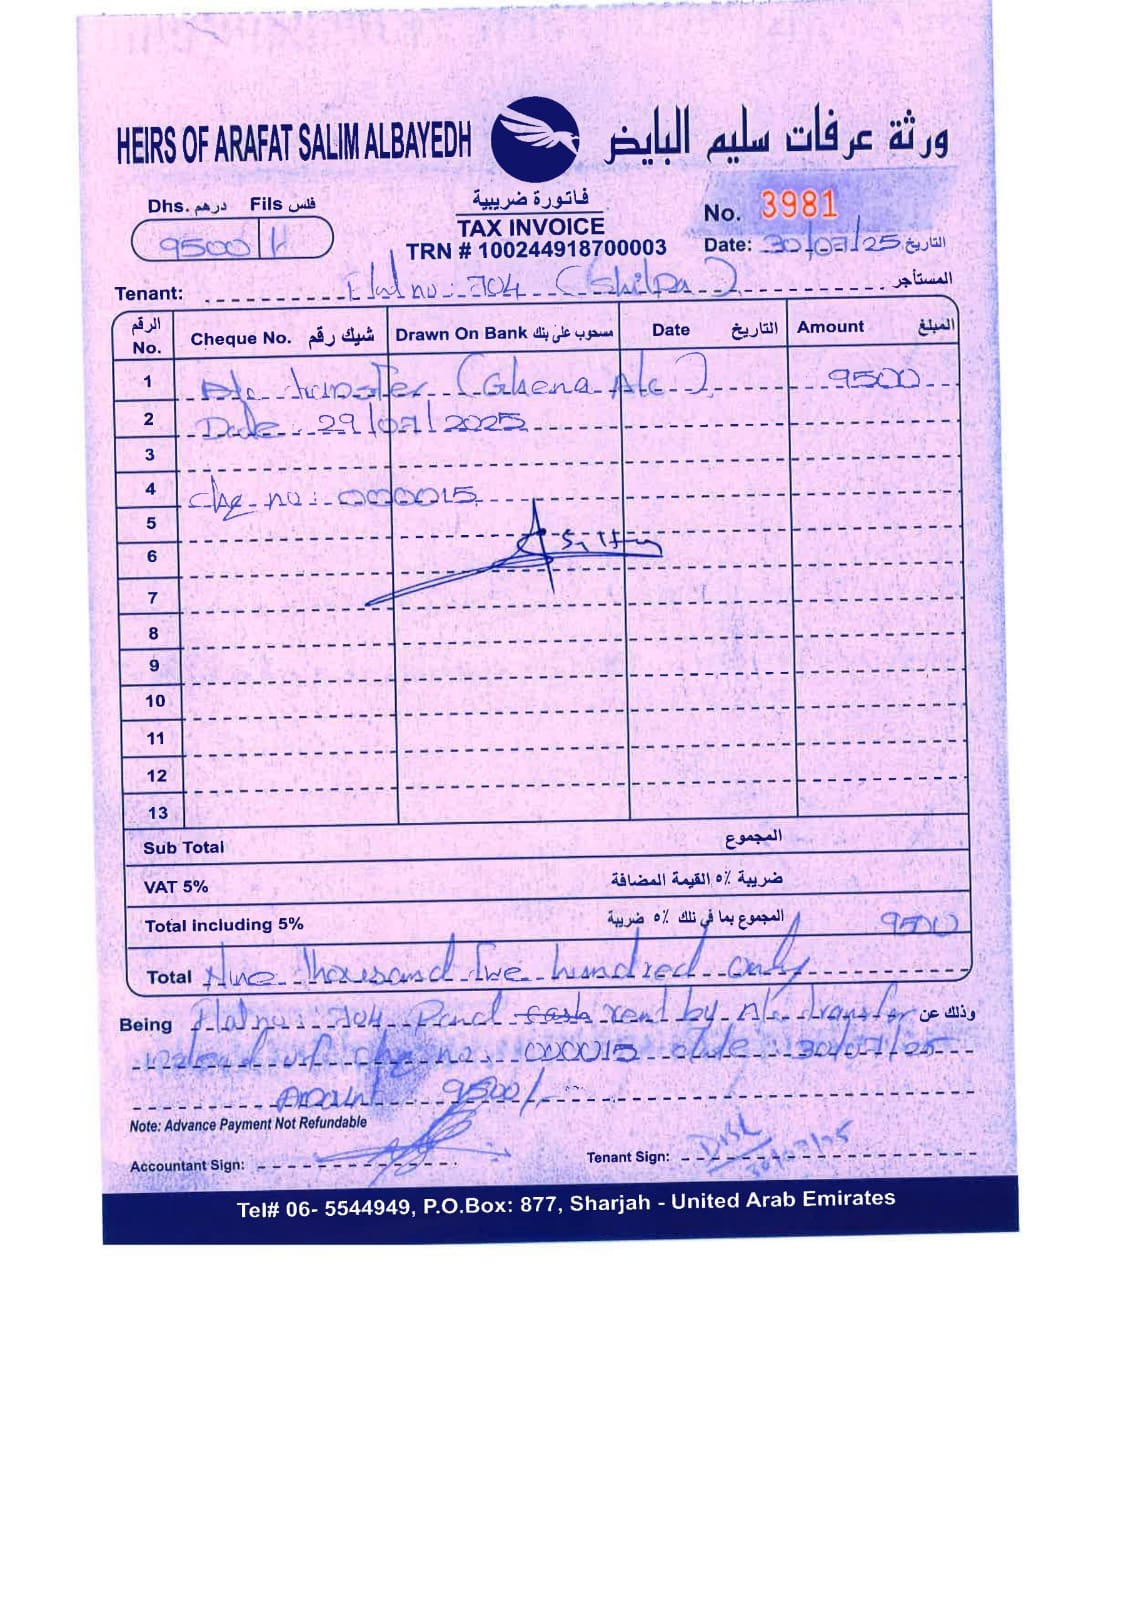 HEIRS OF ARAFAT SALIM ALBAYEDH ورثة عرفات سليم البايض
Dhs. درهم Fils فلس
9500
فاتورة ضريبية
TAX INVOICE
TRN # 100244918700003
No. 3981
Date: 30/07/25 التاريخ
Tenant: Flat no: 704 (Shilpa) المستأجر
الرقم No. Cheque No. شيك رقم Drawn On Bank مسحوب على بنك Date التاريخ Amount المبلغ
1 A/c transfer (Ghena A/c) 9500
2 Date: 29/07/2025
3
4 chq no: 000015
5
6
7
8
9
10
11
12
13
Sub Total المجموع
VAT 5% ضريبة ٥٪ القيمة المضافة
Total including 5% المجموع بما في ذلك ٥٪ ضريبة 9500
Total Nine thousand five hundred only
Being Flat no: 704 cash rent by A/c transfer وذلك عن
instead of chq no: 000015 date: 30/07/25
Amount 9500/-
Note: Advance Payment Not Refundable
Accountant Sign: Tenant Sign:
Tel# 06- 5544949, P.O.Box: 877, Sharjah - United Arab Emirates